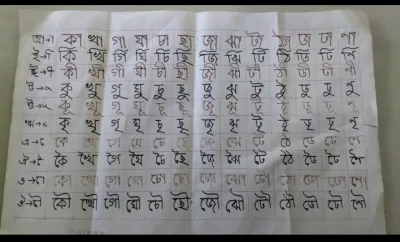 আ→া কা খা গা ঘা চা ছা জা ঝা টা ঠা ডা ঢা ণা
ই→ি কি খি গি ঘি চি ছি জি ঝি টি ঠি ডি ঢি ণি
ঈ→ী কী খী গী ঘী চী ছী জী ঝী টী ঠী ডী ঢী ণী
উ→ু কু খু গু ঘু চু ছু জু ঝু টু ঠু ডু ঢু ণু
ঊ→ূ কূ খূ গূ ঘূ চূ ছূ জূ ঝূ টূ ঠূ ডূ ঢূ ণূ
ঋ→ৃ কৃ খৃ গৃ ঘৃ চৃ ছৃ জৃ ঝৃ টৃ ঠৃ ডৃ ঢৃ ণৃ
এ→ে কে খে গে ঘে চে ছে জে ঝে টে ঠে ডে ঢে ণে
ঐ→ৈ কৈ খৈ গৈ ঘৈ চৈ ছৈ জৈ ঝৈ টৈ ঠৈ ডৈ ঢৈ ণৈ
ও→ো কো খো গো ঘো চো ছো জো ঝো টো ঠো ডো ঢো ণো
ঔ→ৌ কৌ খৌ গৌ ঘৌ চৌ ছৌ জৌ ঝৌ টৌ ঠৌ ডৌ ঢৌ ণৌ